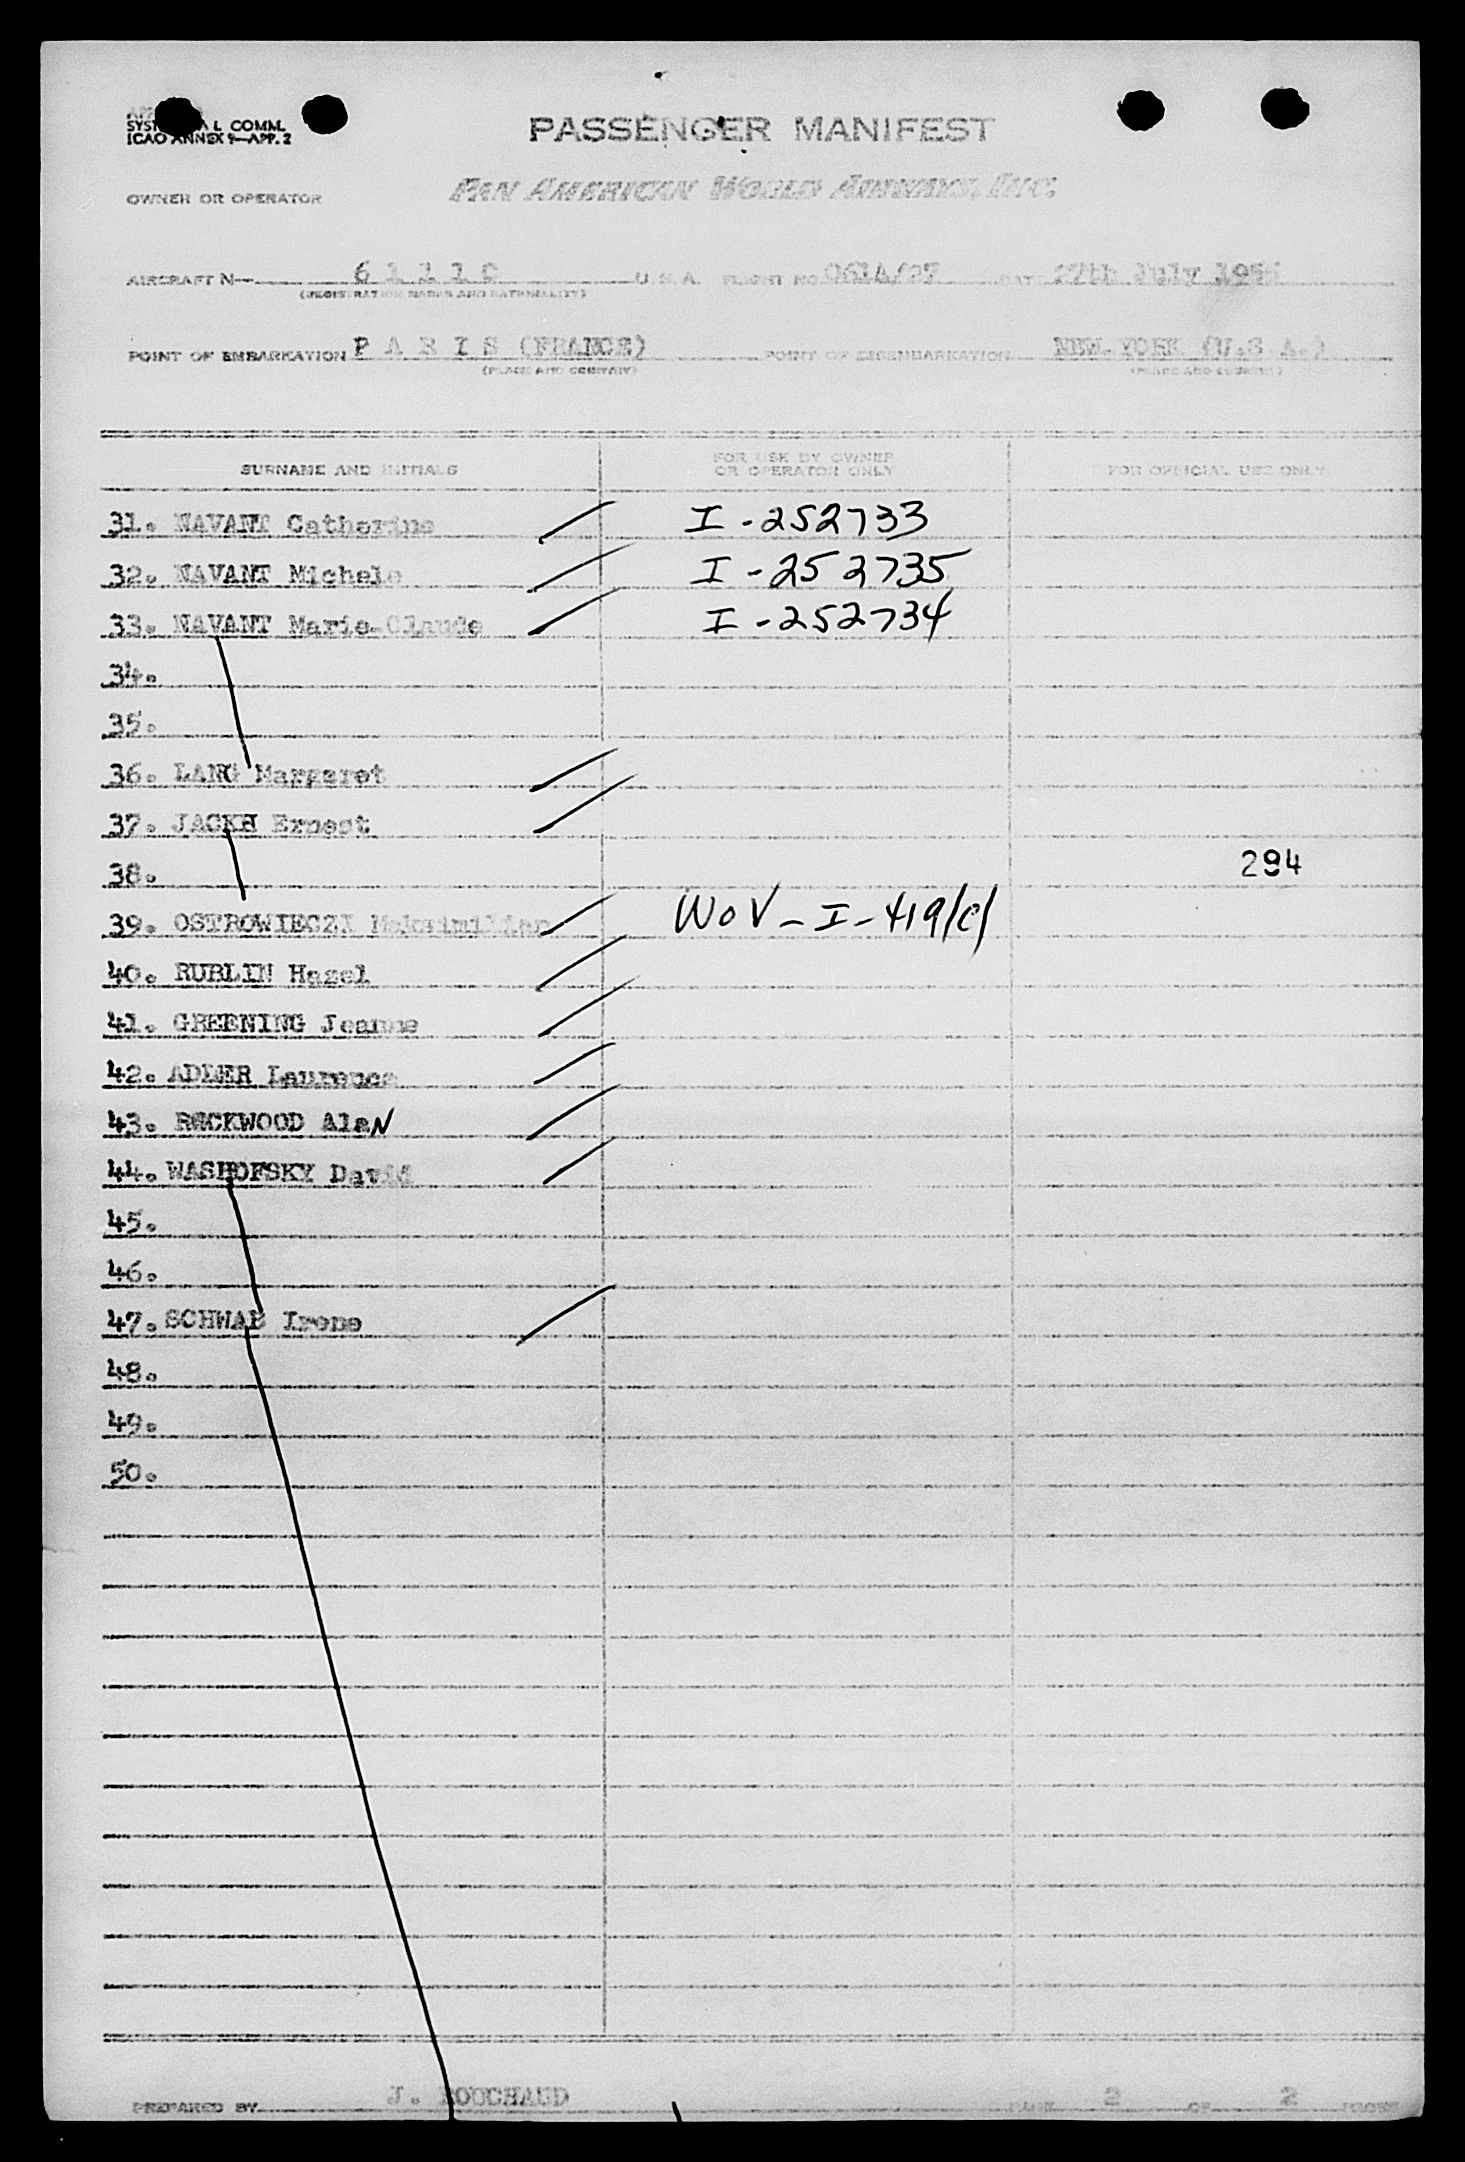 COMM.
ICAO ANNEX 9—APP. 2
PASSENGER MANIFEST
OWNER OR OPERATOR
PAN AMERICAN WORLD AIRWAYS, INC.
AIRCRAFT N— 6 1 1 1 C U.S.A. FLIGHT NO 061A/27 DATE 27th July
(REGISTRATION MARKS AND NATIONALITY)
POINT OF EMBARKATION P A R I S (FRANCE) POINT OF DISEMBARKATION NEW YORK (U.S A.)
(PLACE AND COUNTRY) (PLACE AND COUNTRY)
SURNAME AND INITIALS
FOR USE BY OWNER
OR OPERATOR ONLY
FOR OFFICIAL USE ONLY
31. NAVANT Catherine I-252733
32. NAVANT Michele I-252735
33. NAVANT Marie-Claude I-252734
34.
35.
36. LANG Margaret
37. JACKH Ernest
38. 294
39. OSTROWIECZI WoV-I-419/c/
40. RUBLIN Hazel
41. GREENING Jeanne
42. ADLER Laurence
43. ROCKWOOD Alan
44. WASHOFSKY David
45.
46.
47. SCHWAB Irene
48.
49.
50.
PREPARED BY J. BOUCHAUD PAGE 2 OF 2 PAGES